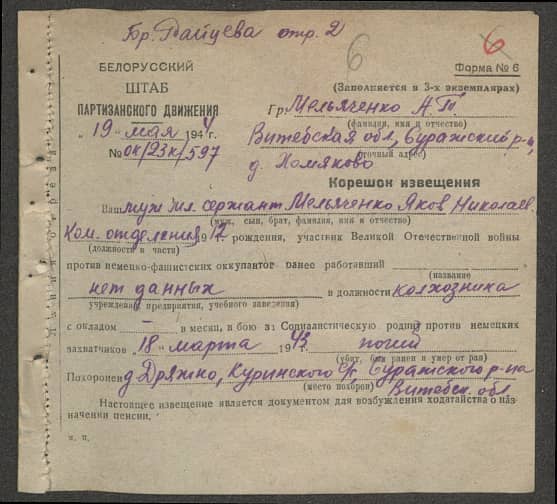 Бр. Райцева отр. 2
6
6
Форма № 6
БЕЛОРУССКИЙ
ШТАБ
ПАРТИЗАНСКОГО ДВИЖЕНИЯ
„ 19 " мая 1944
№ ок/23к/597
(Заполняется в 3-х экземплярах)
Гр. Мельяченко А.Т.
(фамилия, имя и отчество)
Витебская обл, Суражский р-н,
(точный адрес)
д. Хомяково
Корешок извещения
Ваш муж мл. сержант Мельяченко Яков Николаев.
(муж, сын, брат, фамилия, имя и отчество)
Ком. отделения 1912 рождения, участник Великой Отечественной войны
(должности в части)
против немецко-фашистских оккупантов ранее работавший
(название
нет данных в должности колхозника
учреждения предприятия, учебного заведения)
с окладом — в месяц, в бою за Социалистическую родину против немецких
захватчиков „ 18 " марта 1943 погиб
(убит, был ранен и умер от ран)
Похоронен д. Дряжно, Куринского с/с, Суражского р-на
(место похорон)
Витебск. обл
Настоящее извещение является документом для возбуждения ходатайства о наз-
начении пенсии.
м. п.
Линия отреза